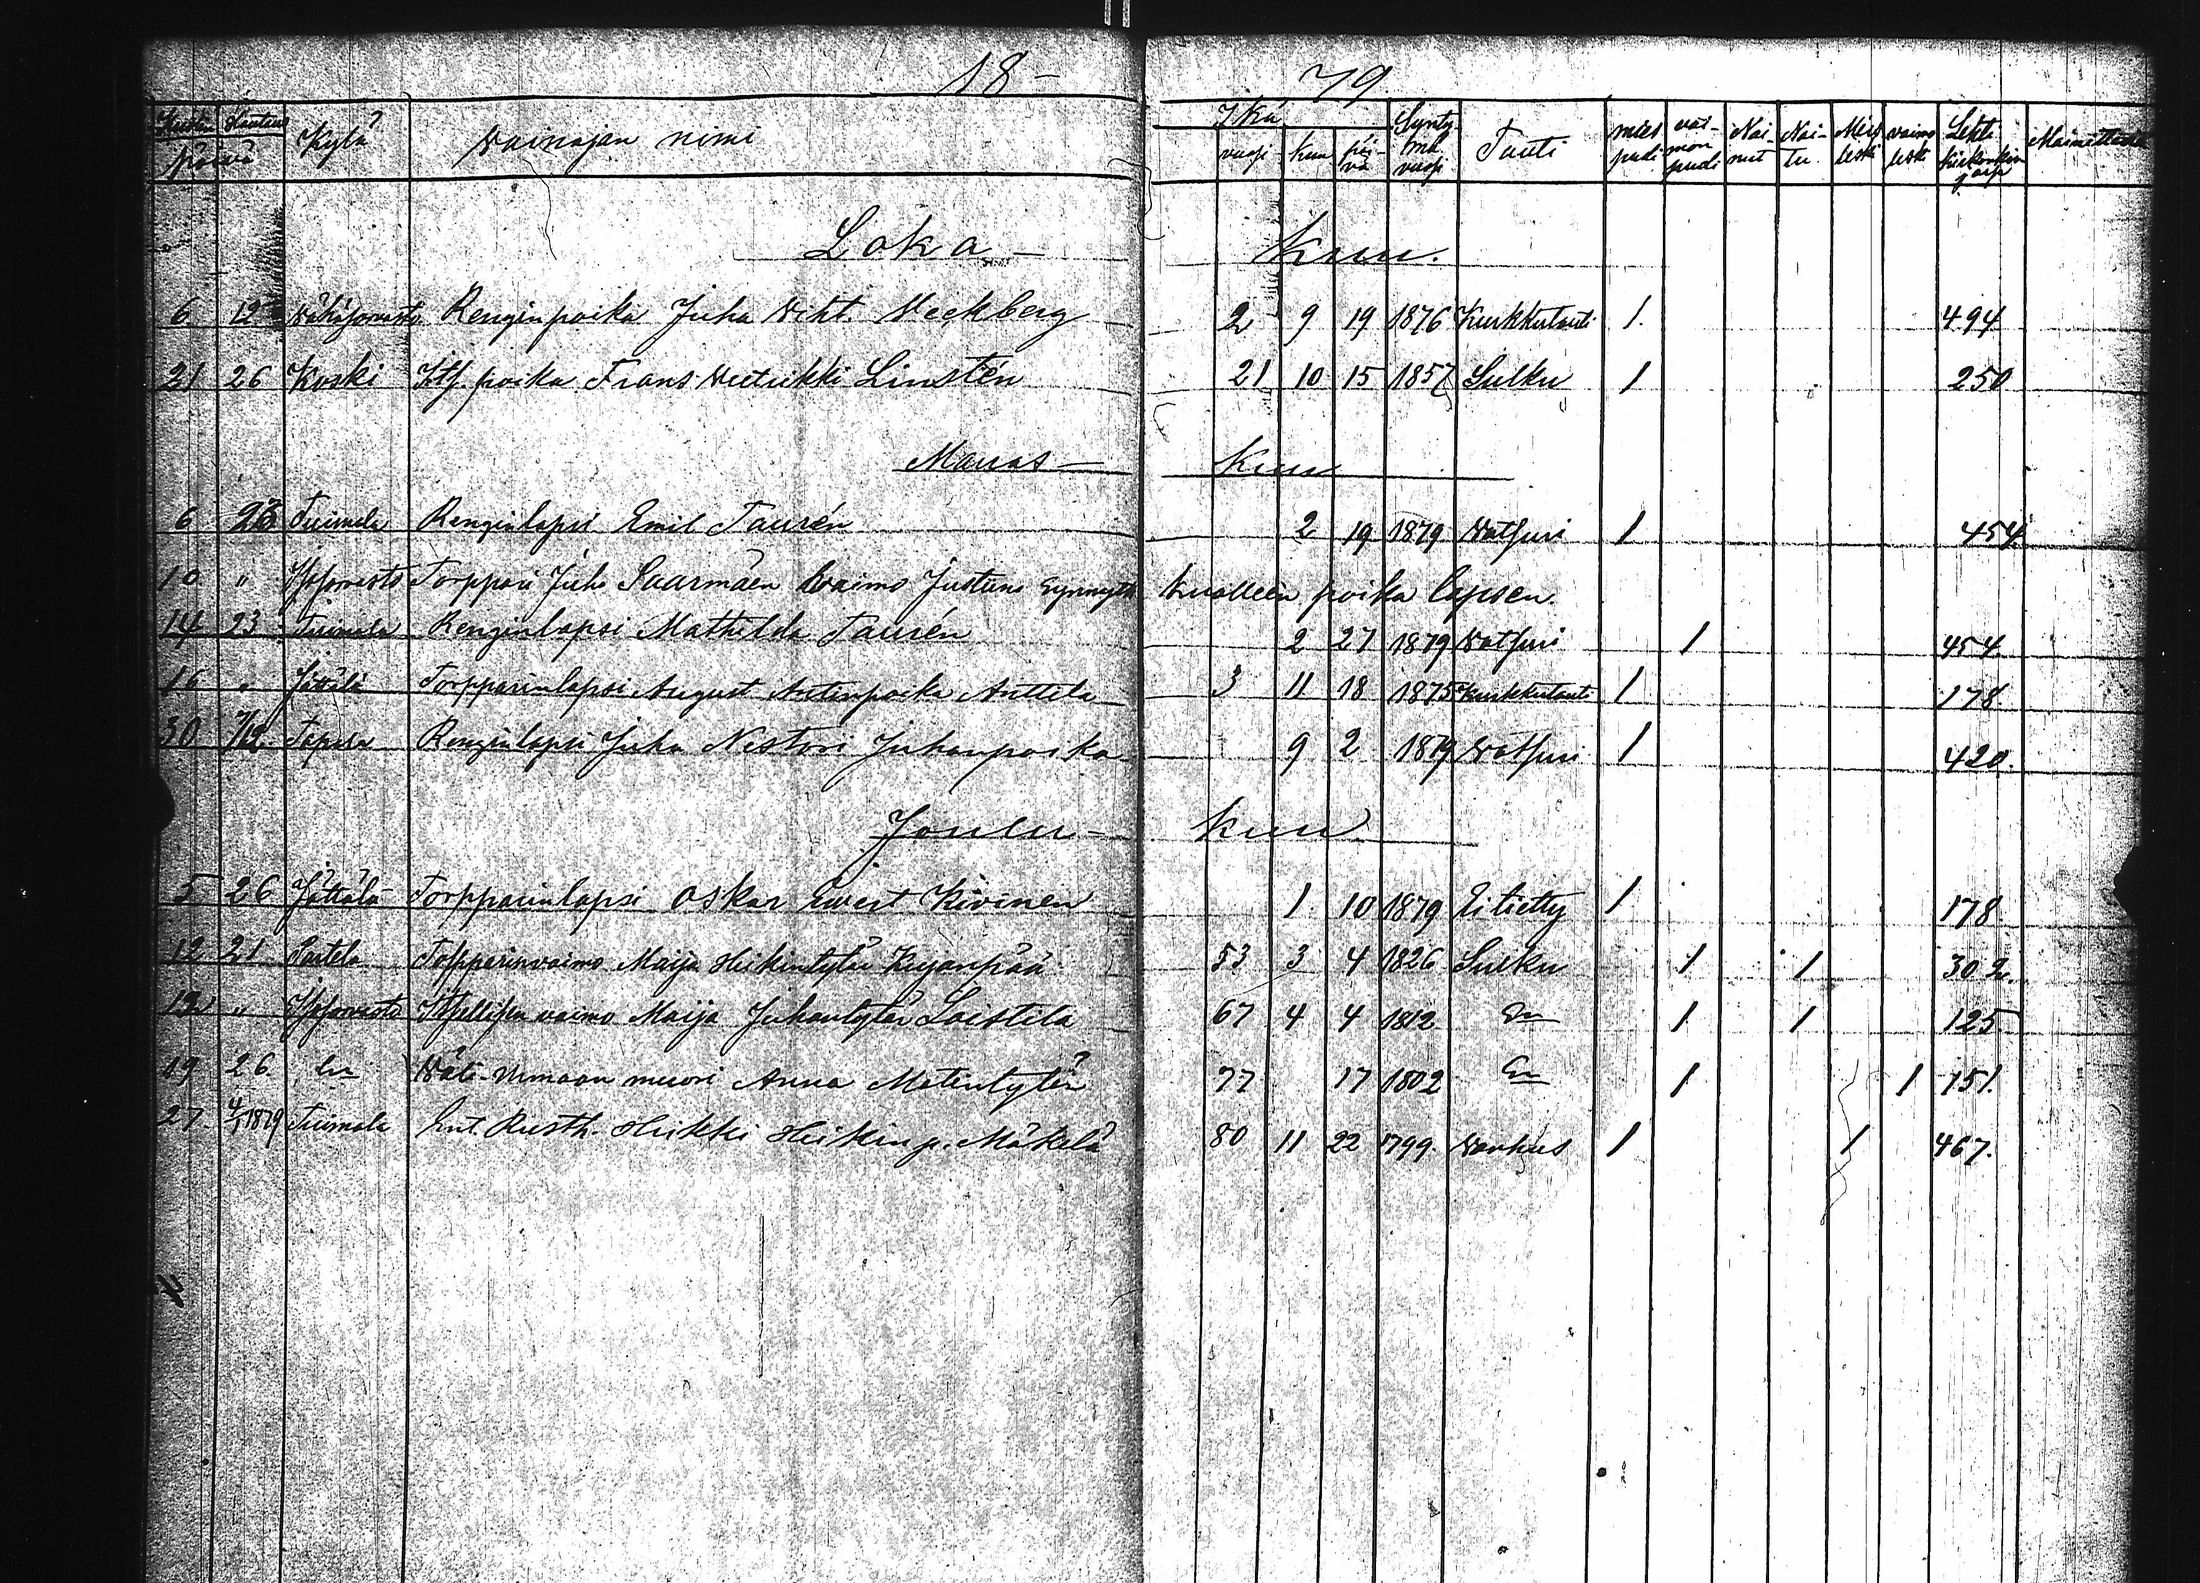 18 — 79.
Kuolin Hautaus Päivä Kylä Vainajan nimi Ikä vuosi kuu päivä Syntymä vuosi Tauti mies puoli vaimon puoli Nainut Naitu Mies leski vaimo leski Lehti
Loka — Kuu.
6. 12 Wähäjoensuu Renginpoika Juha Wiht. Weckberg 2 9 19 1876 Kurkkutauti 1. 494
21 26 Koski Its. poika Frans Wetrikki Linstén 21 10 15 1857 Sulku 1 250
Marras — Kuu
6 23 Tuimala Renginlapsi Emil Taurén 2 19 1879 Watsuri 1 454
10 " Torppari Juho Saarmäen waimo Justiina synnytti kuolleen poika lapsen.
14 23 Tuimala Renginlapsi Mathilda Taurén 2 27 1879 Watsuri 1 454
16 " Jättälä Torpparinlapsi August Antinpoika Anttila 3 11 18 1875 Kurkkutauti 1 178.
30 7/12 Tapala Renginlapsi Juha Nestori Juhanpoika 9 2 1879 Watsuri 1 420.
Joulu — Kuu
5 26 Jättälä Torpparinlapsi Oskar Ewert Kivinen 1 10 1879 Ei tietty 1 178
12 21 Torpparinvaimo Maija Heikintytär Kujanpää 53 3 4 1826 Sulku 1 1 302.
12 " Itsellisen vaimo Maija Juhantytär Laistela 67 4 4 1812 1 1 125
19 26 muori Anna Matintytär 77 17 1802 1 1 151.
27. 4/1 1879 Tuimala Ent. Rusth. Heikki Heikinp. Mäkelä 80 11 22 1799. Vanhuus 1 1 467.